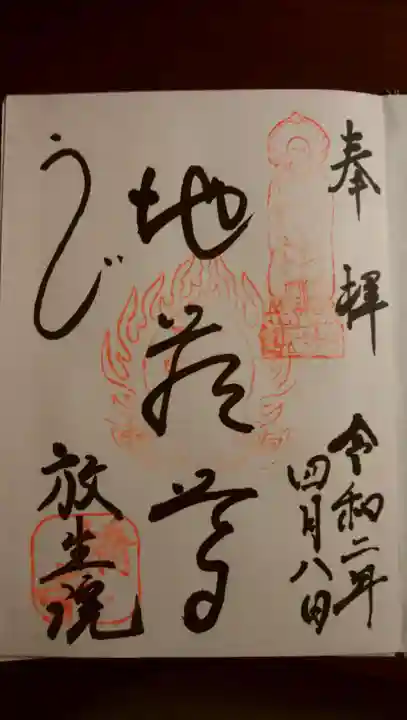 奉拝
令和二年
四月八日
地蔵尊
うじ
放生院